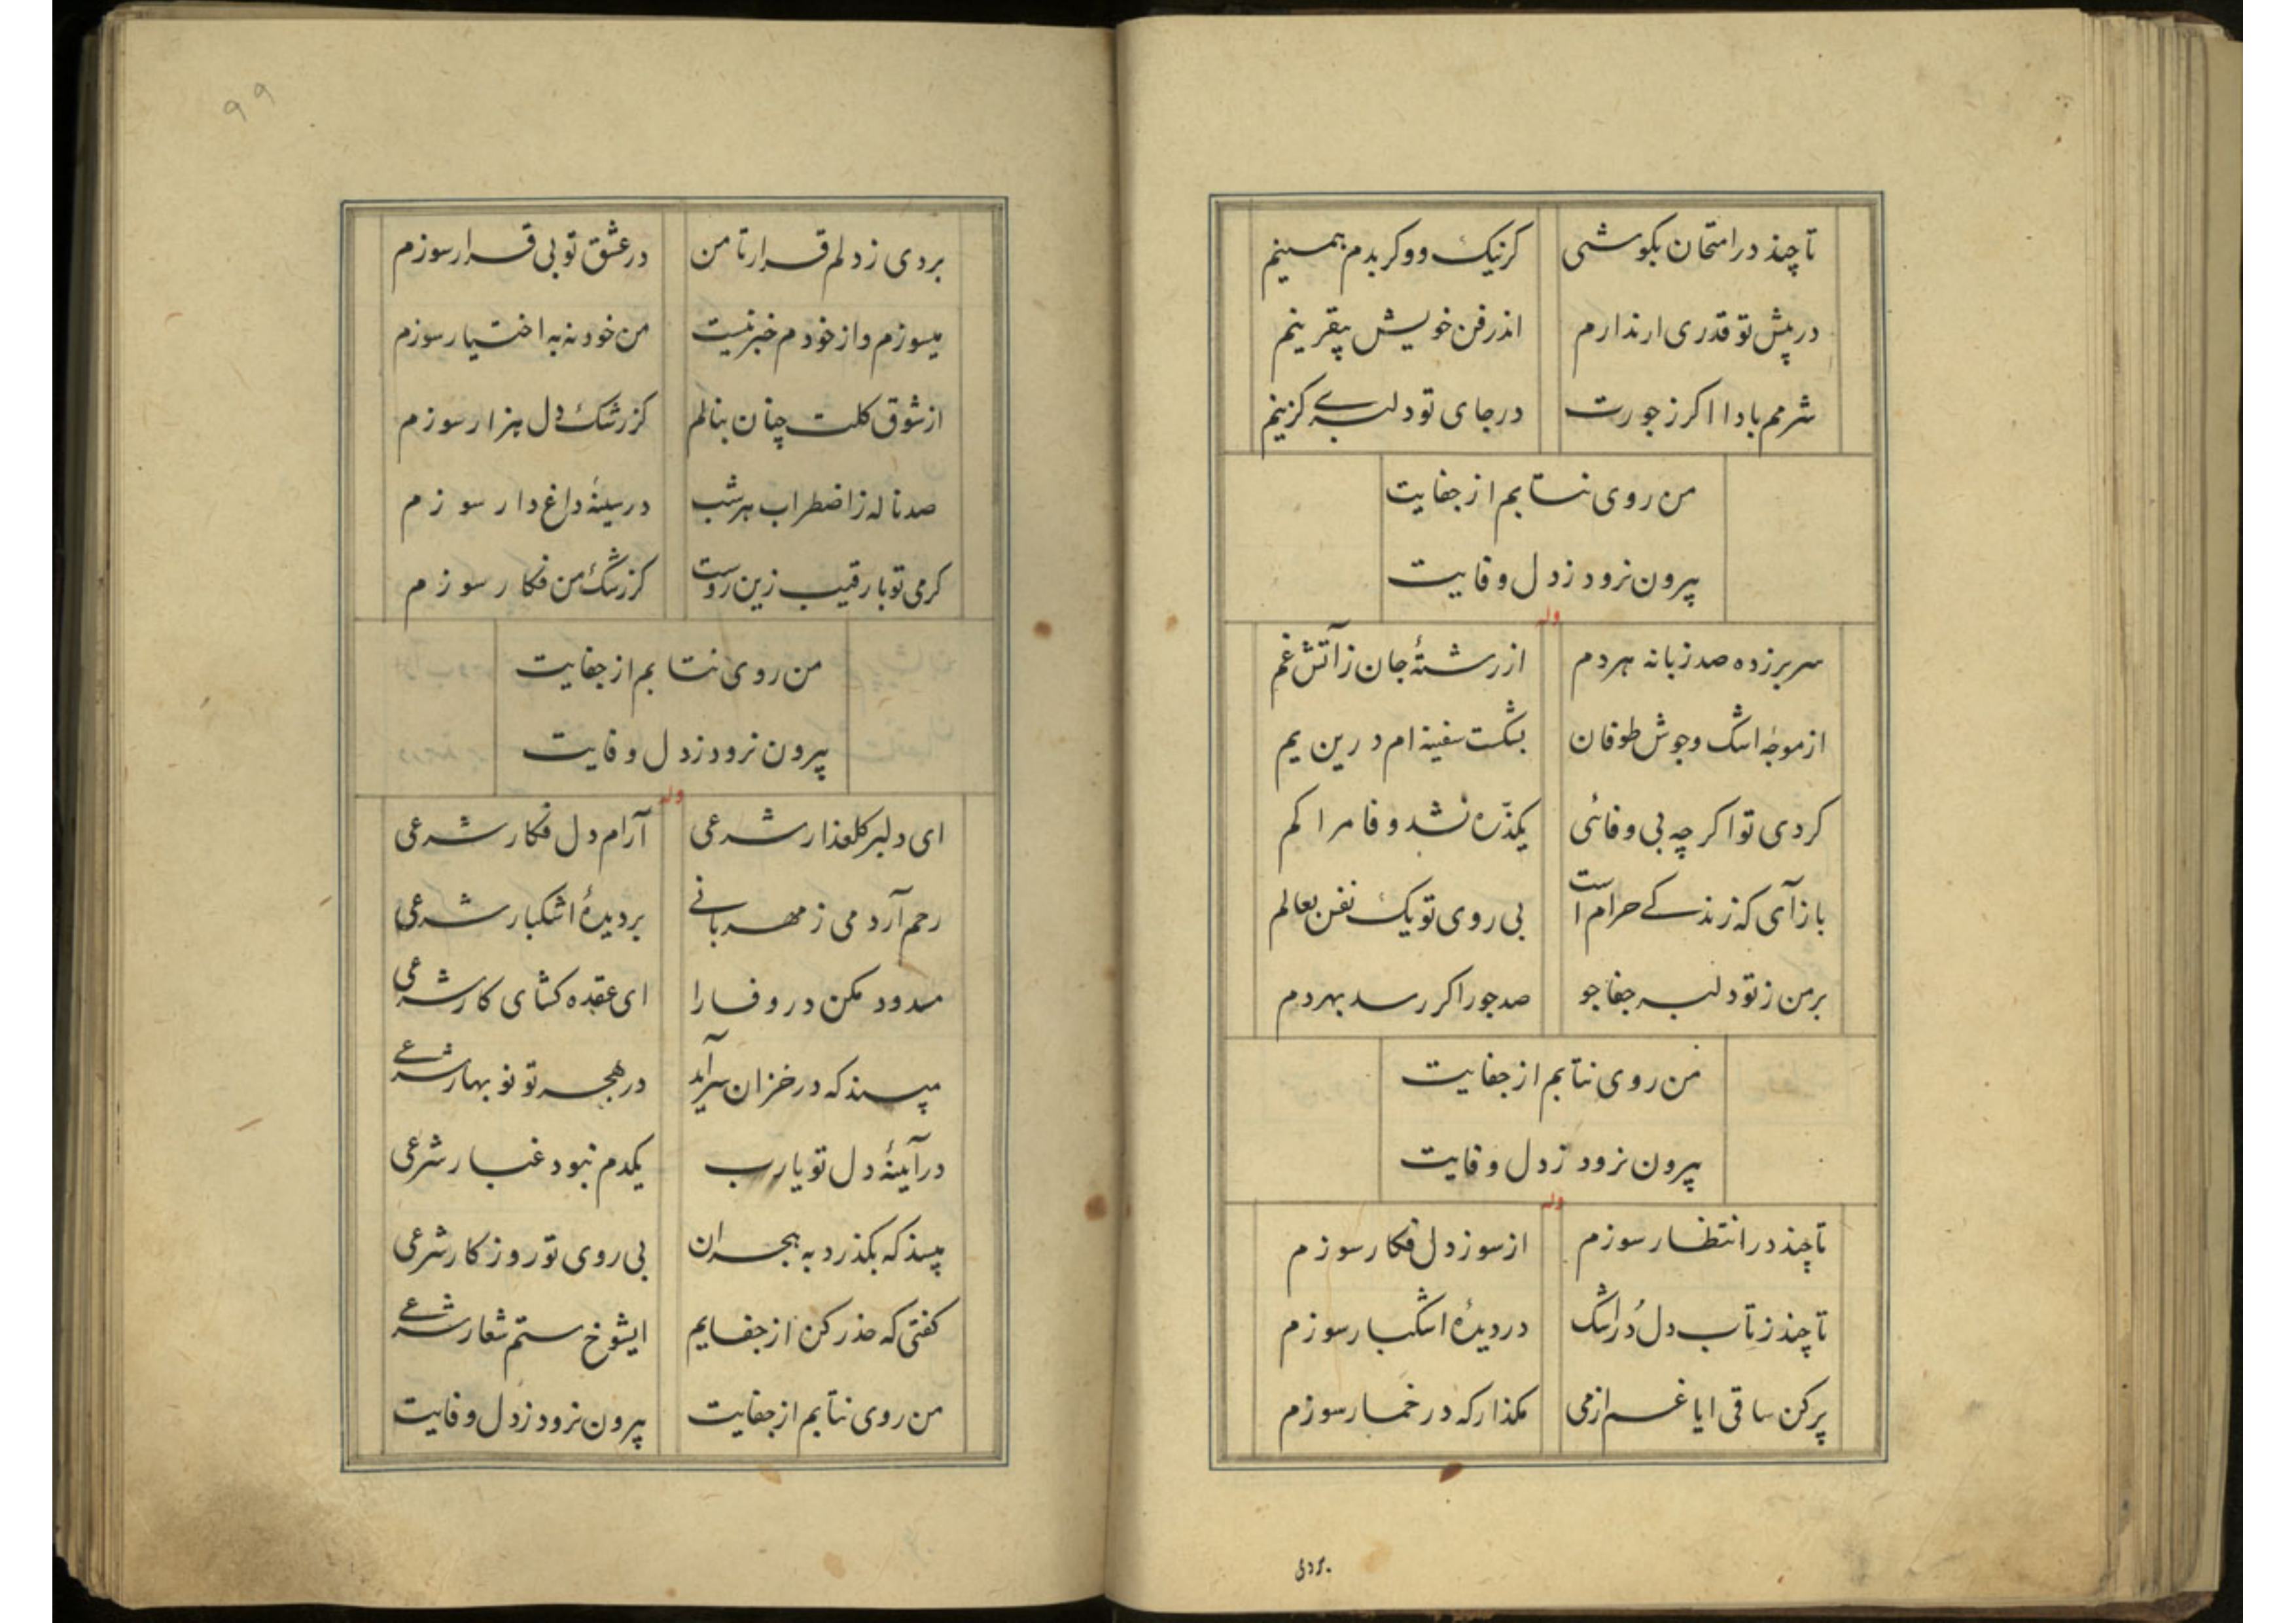 تا چند در امتحان بکوشی کر نیک و وکر بدم همینم
در پیش تو قدری ار ندارم اندر فن خویش بیقرینم
شرمم بادا اکر ز جورت در جای تو دلبری کزینم
من روی نتابم از جفایت
بیرون نرود ز دل وفایت
وله
سر بر زده صد زبانه هر دم از رشتهٔ جان ز آتش غم
از موجهٔ اشک و جوش طوفان بشکست سفینه ام درین یم
کردی تو اکر چه بی وفائی یکذرّه نشد وفا مرا کم
باز آی که زندکی حرام است بی روی تو یک نفس بعالم
بر من ز تو دلبر جفا جو صد جور اکر رسد بهر دم
من روی نتابم از جفایت
بیرون نرود ز دل وفایت
وله
تا چند در انتظار سوزم از سوز دل فکار سوزم
تا چند ز تاب دل دُر اشک در دیدهٔ اشکبار سوزم
پر کن ساقی ایاغم از می مکذار که در خمار سوزم
بردی
۹۹
بردی ز دلم قرار تا من در عشق تو بی قرار سوزم
میسوزم و از خودم خبر نیست من خود نه به اختیار سوزم
از شوق کلت چنان بنالم کز رشک دل هزار سوزم
صد ناله ز اضطراب هر شب در سینهٔ داغ دار سوزم
کرمی تو با رقیب زین روست کز رشک من فکار سوزم
من روی نتابم از جفایت
بیرون نرود ز دل وفایت
وله
ای دلبر کلعذار شرعی آرام دل فکار شرعی
رحم آر دمی ز مهربانی بر دیدهٔ اشکبار شرعی
مسدود مکن در وفا را ای عقده کشای کار شرعی
مپسند که در خزان سرآید در هجر تو نو بهار شرعی
در آینهٔ دل تو یا رب یکدم نبود غبار شرعی
مپسند که بکذرد به هجران بی روی تو روزکار شرعی
کفتی که حذر کن از جفایم ایشوخ ستم شعار شرعی
من روی نتابم از جفایت بیرون نرود ز دل وفایت